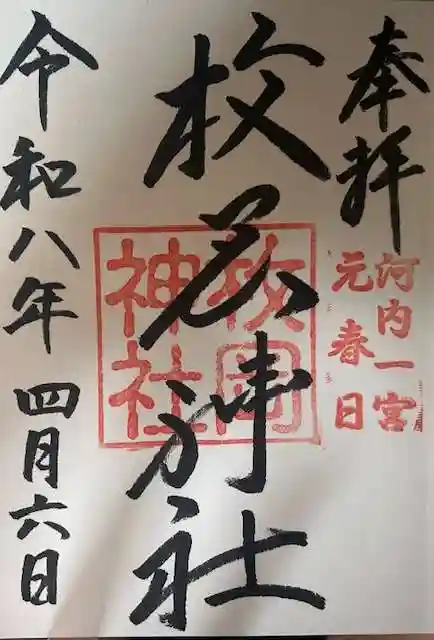 奉拝
河内一宮
元春日
枚岡神社
枚岡
神社
令和八年四月六日